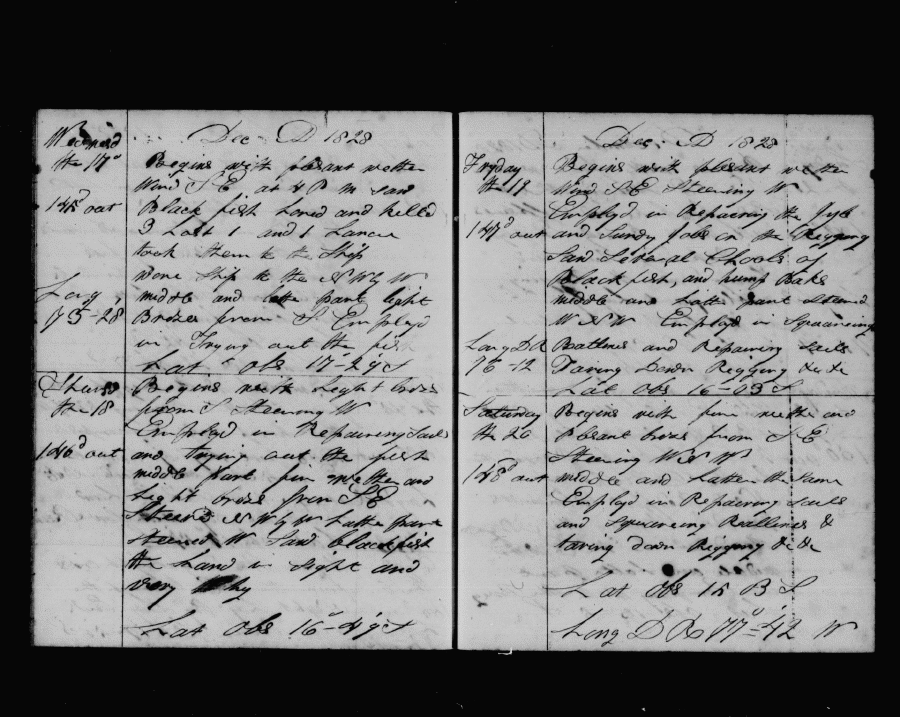 Dec. D 1828
Wednesd
the 17d
145d out
Long
73-28
Begins with plesant wether
Wind S E at 4 P m saw
Black fish Lored and killed
3 Lost 1 and 1 Lance
took them to the Ship
wore Ship to the N W by W
middle and latter part light
Brozes from S Employd
in Trying out the fish
Lat obs 17-29 S
Thursd
the 18
146d out
Begins with Light brozes
from S Steering W
Employd in Repairing Sails
and trying out the fish
middle part fin wether and
Light brozes from S E
Steerd N W by W Latter part
steered W Saw blackfish
the Land in sight and
very
Lat obs 16-49 S
Dec. D 1828
Fryday
the 19
147d out
Long D R
76-12
Begins with plesent wether
Wind S E Steering W
Employd in Repairing the Jyb
and Sundy Jobs on the Riggeng
Saw Several Chools of
Black fish, and hump Baks
middle and Latter part steered
W N W Employd in Squareing
Ratlines and Repairing sails
Taring Down Rigging &c &c
Lat obs 16-03 S
Saturday
the 20
148d out
Begins with fine wether and
Plesant brozes from S E
Steering W N W
middle and Latter the same
Employd in Repairing sails
and Squareing Ratlines &
taring down Riggeng &c &c
Lat obs 15 B S
Long D R 77-42 W